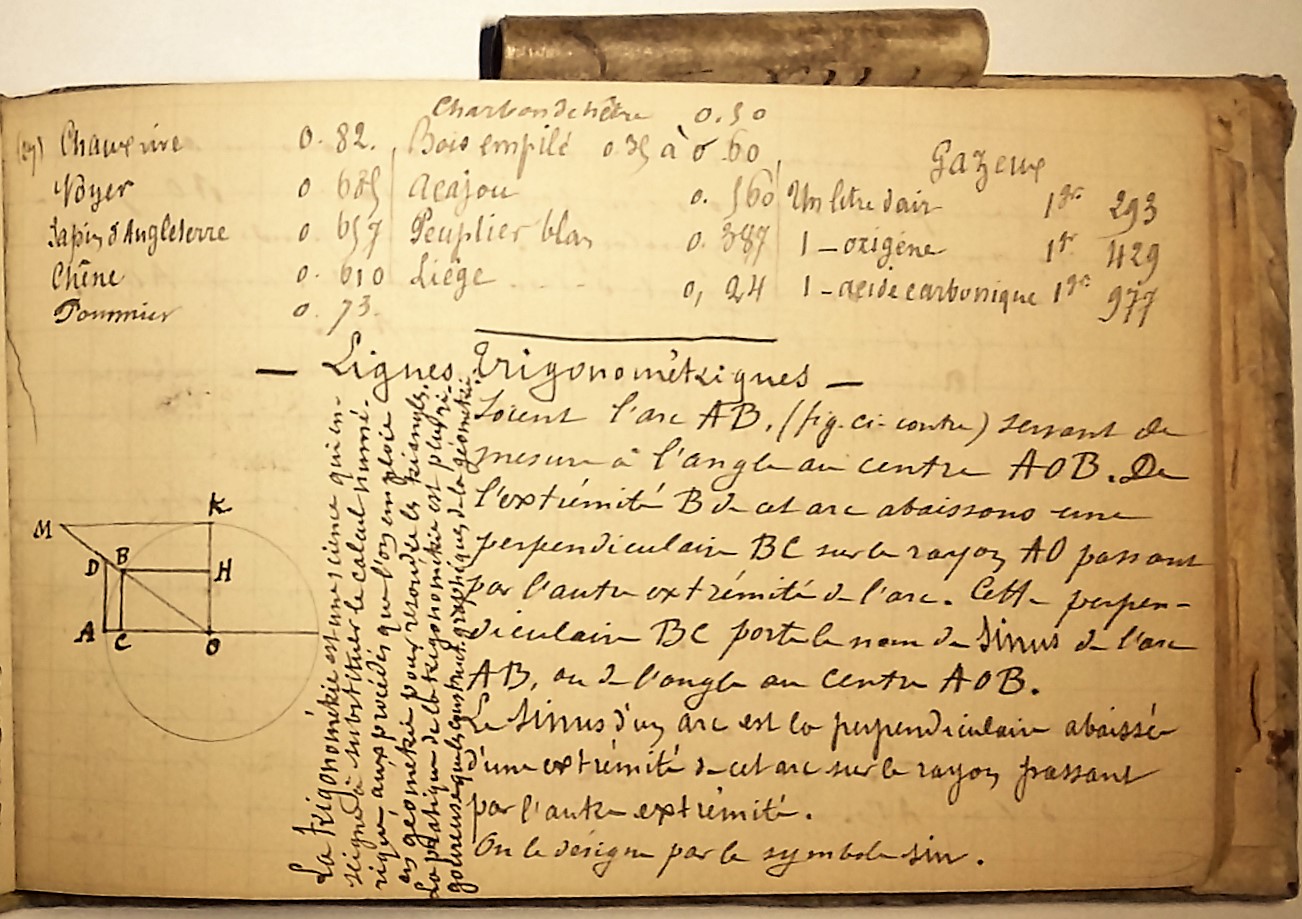 Charbon de hêtre 0.50
Chaux vive 0.82. Bois empilé 0.35 à 0.60
Gazeux
Noyer 0 685 Acajou 0. 560 Un litre d'air 1gr 293
Sapin d'Angleterre 0 657 Peuplier blan 0. 387 1 - oxigène 1gr 429
Chêne 0. 610 Liège 0, 24 1 - acide carbonique 1gr 977
Pommier 0. 73.
— Lignes Trigonométriques —
Soient l'arc AB, (fig. ci-contre) servant de
mesure à l'angle au centre AOB. De
l'extrémité B de cet arc abaissons une
perpendiculaire BC sur le rayon AO passant
par l'autre extrémité de l'arc. Cette perpen-
diculaire BC porte le nom de sinus de l'arc
AB, ou de l'angle au centre AOB.
Le sinus d'un arc est la perpendiculaire abaissée
d'une extrémité de cet arc sur le rayon passant
par l'autre extrémité.
On le désigne par le symbole sin.
La trigonométrie est une science qui en-
seigne à substituer le calcul numé-
rique aux procédés que l'on emploie
en géométrie pour résoudre les triangles.
La pratique de la trigonométrie est plus ri-
goureuse que les construct. graphiques de la géométrie.
M K
D B H
A C O